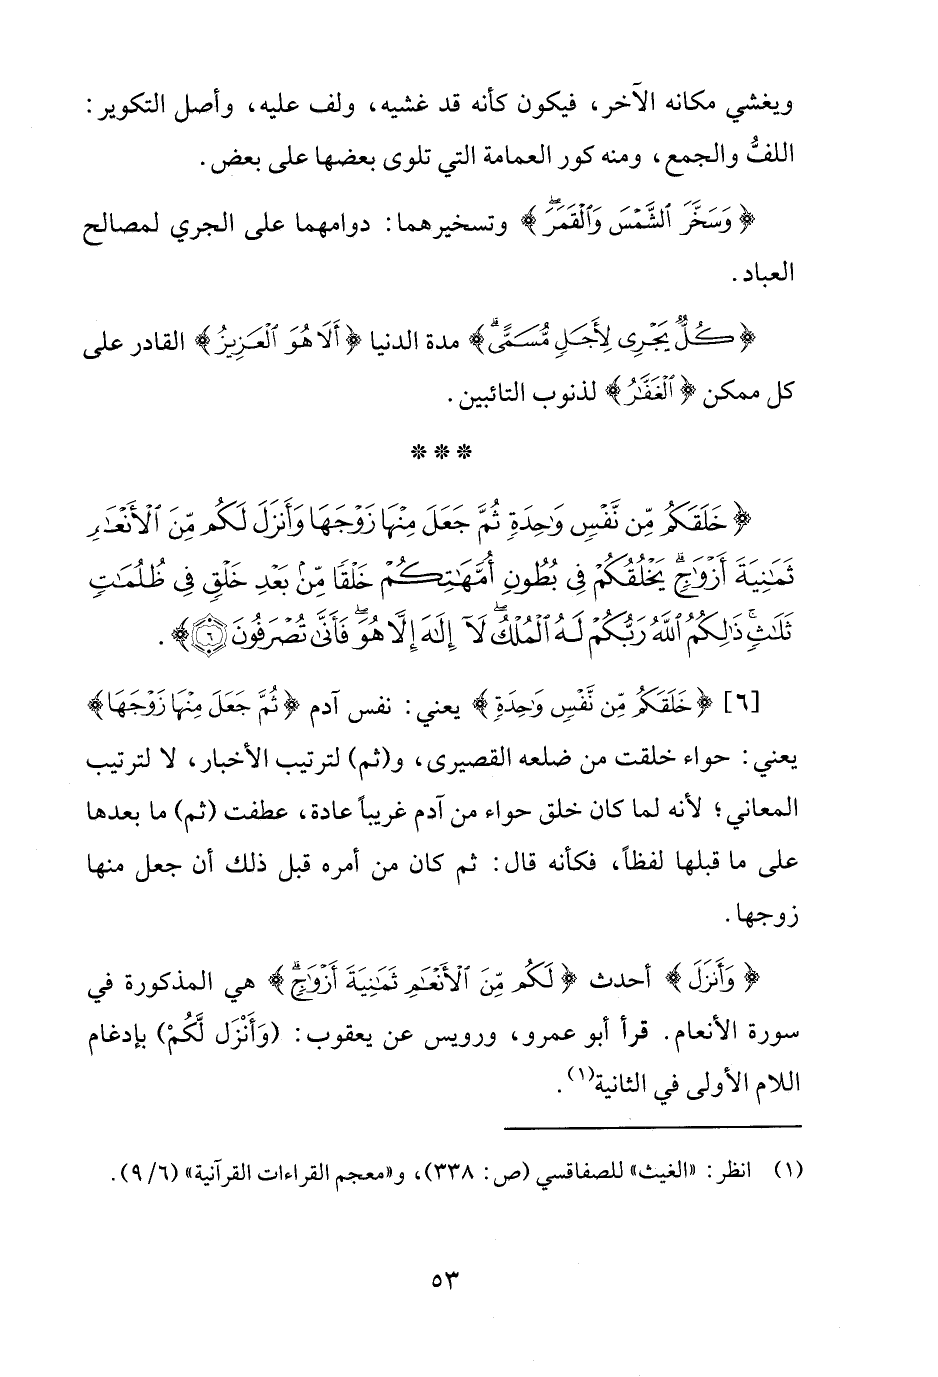 ويغشي مكانه الآخر، فيكون كأنه قد غشيه، ولف عليه، وأصل التكوير:
اللفُّ والجمع، ومنه كور العمامة التي تلوى بعضها على بعض.
﴿وَسَخَّرَ ٱلشَّمْسَ وَٱلْقَمَرَۖ﴾ وتسخيرهما: دوامهما على الجري لمصالح
العباد.
﴿كُلٌّ يَجْرِى لِأَجَلٍ مُّسَمًّىۗ﴾ مدة الدنيا ﴿أَلَا هُوَ ٱلْعَزِيزُ﴾ القادر على
كل ممكن ﴿ٱلْغَفَّٰرُ﴾ لذنوب التائبين.
* * *
﴿خَلَقَكُم مِّن نَّفْسٍ وَٰحِدَةٍ ثُمَّ جَعَلَ مِنْهَا زَوْجَهَا وَأَنزَلَ لَكُم مِّنَ ٱلْأَنْعَٰمِ
ثَمَٰنِيَةَ أَزْوَٰجٍۗ يَخْلُقُكُمْ فِى بُطُونِ أُمَّهَٰتِكُمْ خَلْقًا مِّنۢ بَعْدِ خَلْقٍ فِى ظُلُمَٰتٍ
ثَلَٰثٍۚ ذَٰلِكُمُ ٱللَّهُ رَبُّكُمْ لَهُ ٱلْمُلْكُۖ لَآ إِلَٰهَ إِلَّا هُوَۖ فَأَنَّىٰ تُصْرَفُونَ ٦﴾.
[٦] ﴿خَلَقَكُم مِّن نَّفْسٍ وَٰحِدَةٍ﴾ يعني: نفس آدم ﴿ثُمَّ جَعَلَ مِنْهَا زَوْجَهَا﴾
يعني: حواء خلقت من ضلعه القصيرى، و(ثم) لترتيب الأخبار، لا لترتيب
المعاني؛ لأنه لما كان خلق حواء من آدم غريباً عادة، عطفت (ثم) ما بعدها
على ما قبلها لفظاً، فكأنه قال: ثم كان من أمره قبل ذلك أن جعل منها
زوجها.
﴿وَأَنزَلَ﴾ أحدث ﴿لَكُم مِّنَ ٱلْأَنْعَٰمِ ثَمَٰنِيَةَ أَزْوَٰجٍۗ﴾ هي المذكورة في
سورة الأنعام. قرأ أبو عمرو، ورويس عن يعقوب: (وَأَنْزَل لَّكُمْ) بإدغام
اللام الأولى في الثانية(١).
(١) انظر: «الغيث» للصفاقسي (ص: ٣٣٨)، و«معجم القراءات القرآنية» (٦/ ٩).
٥٣